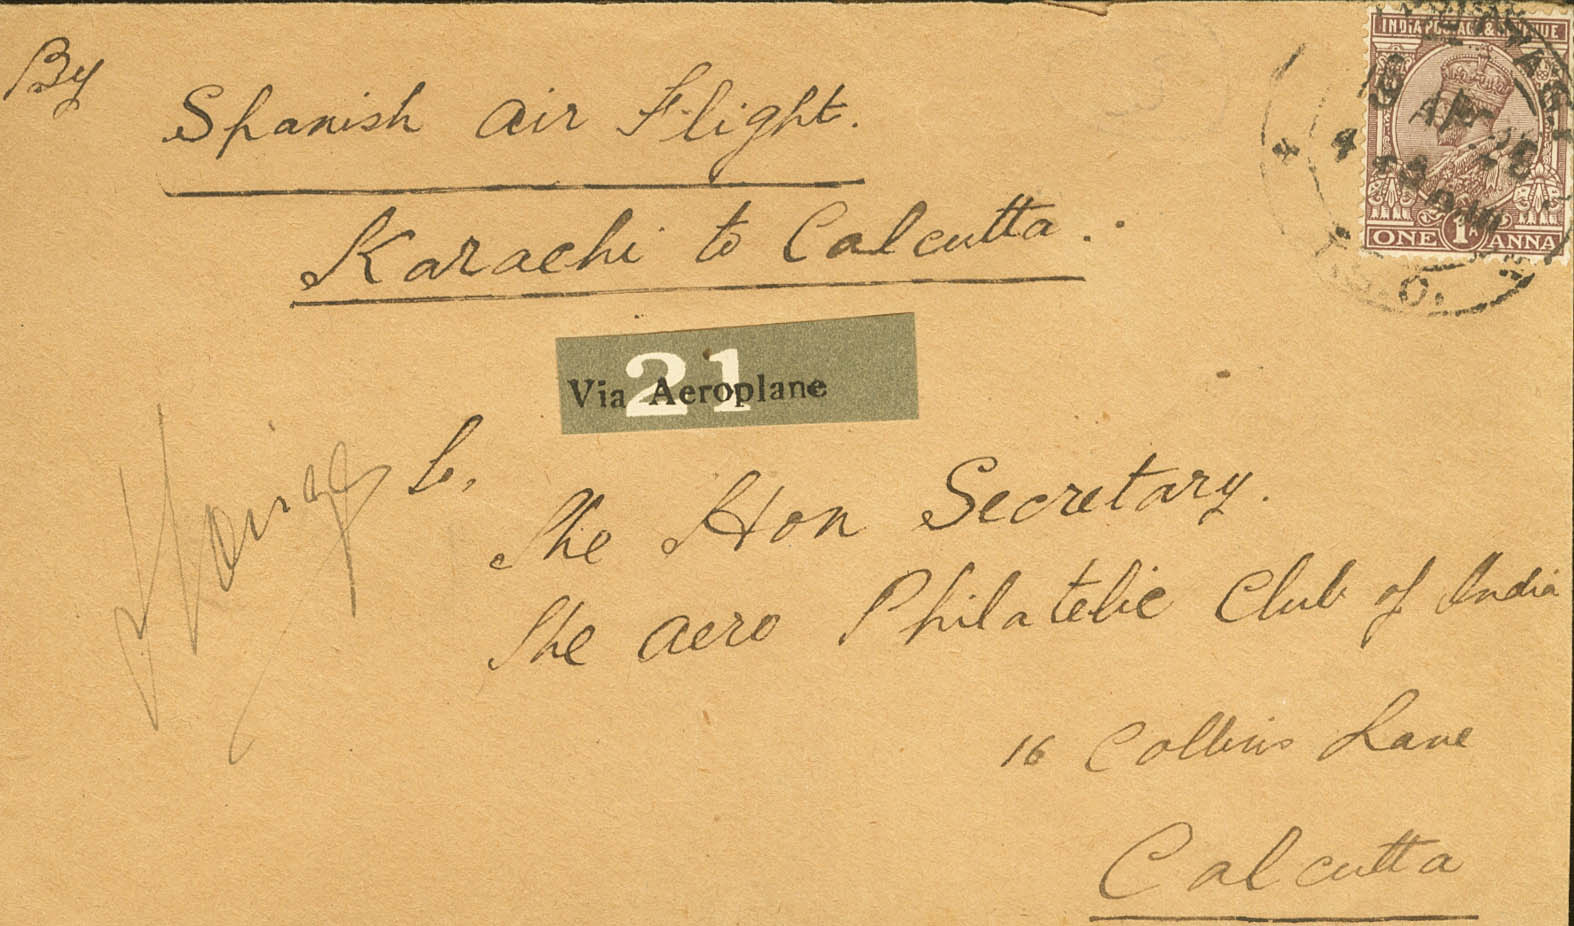 By
Spanish Air Flight.
Karachi to Calcutta.
INDIA POSTAGE & REVENUE
ONE 1A ANNA
T.S.O.
21
Via Aeroplane
To,
The Hon Secretary.
The Aero Philatelic Club of India
16 Collins Lane
Calcutta